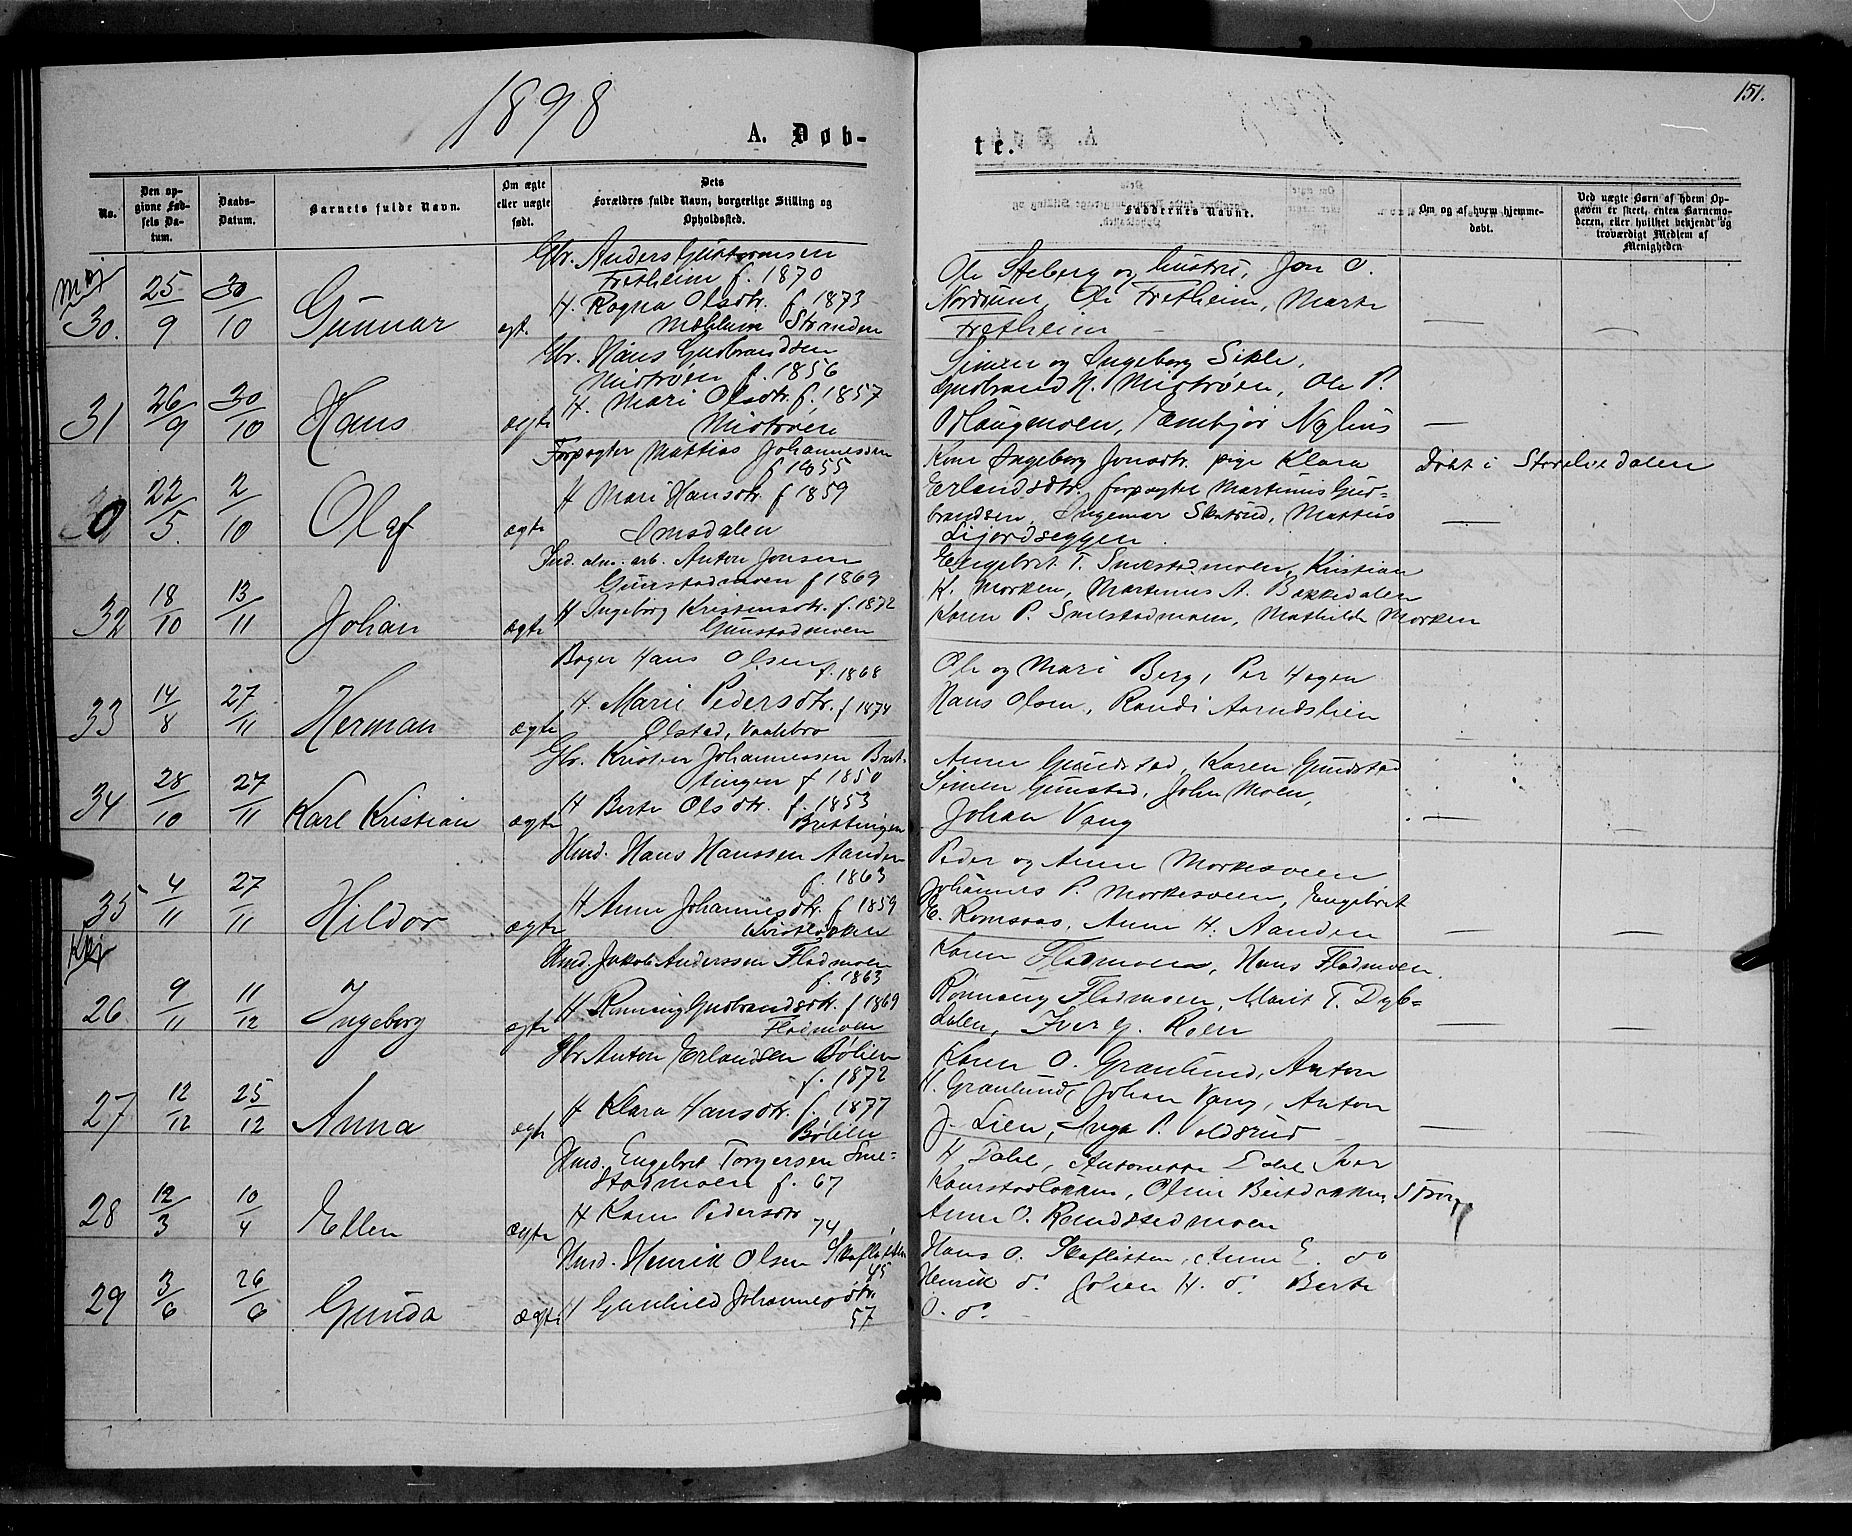 1898
151.
A. Døb-
te.
No.
Den opgivne Fødsels Datum.
Daabs-Datum.
Barnets fulde Navn.
Om ægte eller uægte født.
Dets Forældres fulde Navn, borgerlige Stilling og Opholdssted.
Faddernes Navne.
Om og af hvem hjemmedøbt.
Ved uægte Børn af hvem Opgaven er skeet, enten Barnemoderen, eller hvilket bekjendt og troværdigt Medlem af Menigheden
30. 25/9 30/10 Gunnar egt.
Gbr. Anders Guttormsen
Fretheim f. 1870
H. Ragna Olsdtr. f. 1873
Mæhlum Stranden
Ole Steberg og hustru, Jon O.
Nordrum, Ole Fretheim, Marte
Fretheim —
31 26/9 30/10 Hans ægte
Gbr. Hans Gudbrandsen
Mistroen f. 1856
H. Mari Olsdtr. f. 1857
Mistroen
Simen og Ingeborg Sikle,
Gudbrand H. Mistroen, Ole P.
Haugmoen, Embjør Nyhus —
0 22/5. 2/10 Olaf ægte
Forpagter Mattias Johannesen
f 1855
H Mari Hansdtr. f 1859
Imsdalen
Kone Ingeborg Jonsdtr. pige Klara
Erlandsdtr. forpagter Martinus Gud-
brandsen, Ingemar Skutrud, Mattius
Lijordseggen.
Døbt i Storelvedalen
—
32 18/10 13/11 Johan ægte
Ind. alm. arb. Anton Jonsen
Gunstadmoen f 1869
H Ingeborg Kristensdtr. f. 1872
Gunstadmoen
Engebret T. Smestadmoen, Kristian
K. Morken, Martinus A. Bakkedalen
Karen P. Smestadmoen, Mathilde Morken
33 14/8 27/11 Herman ægte
Bager Hans Olsen
f. 1868
H. Marie Pedersdtr. f 1874
Olstad, Vaalebro
Ole og Mari Berg, Per Hagen
Hans Olsen, Randi Aarndslien
34 28/10 27/11 Karl Kristian ægte
Gbr. Kristen Johannessen Brit-
tingen f 1850
H Berte Olsdtr. f. 1853
Brittingen
Anne Gundstad, Karen Gundstad
Simen Gunstad, John Moen,
Johan Vang
—
35 4/11 27/11 Hildor ægte
Hmd. Hans Hanssen Aanden
f. 1863
H Anne Johannesdtr. f 1859
Peder og Anne Morkesveen
Johannes P. Morkesveen, Engebret
E. Romsaas, Anne H. Aanden
—
26 9/11 11/12 Ingeborg egte
Hmd. Jakob Anderssen Fladmoen
f. 1863
H Rønnaug Gudbrandsdtr. f 1869
Fladmoen
Karen Fladmoen, Hans Fladmoen.
Rønnaug Fladmoen, Marit T. Dyb-
dalen, Iver G. Roen
—
27 12/12 25/12 Anna egte
Gbr Anton Erlandsen Bølien
f. 1872
H Klara Hansdtr. f. 1877
Bølien
Karen O. Granlund, Anton
H. Granlund, Johan Vang, Anton
J. Lien, Inga P. Voldsrud
—
28 12/3 10/4 Ellen ægte
Hmd. Engebret Torgersen Sme-
stadmoen f. 67
H Karen Pedersdtr
74
H Dahl, Antonette Dahl Iver
Anne O. Randstedmoen
29 3/6 26/6 Gunda ægte
Hmd. Henrik Olsen Skafløtten
45
H Gunhild Johannesdtr.
57
Hans O. Skafløtten, Anne E. do
Henrik do. H. do. Berte
O. do.